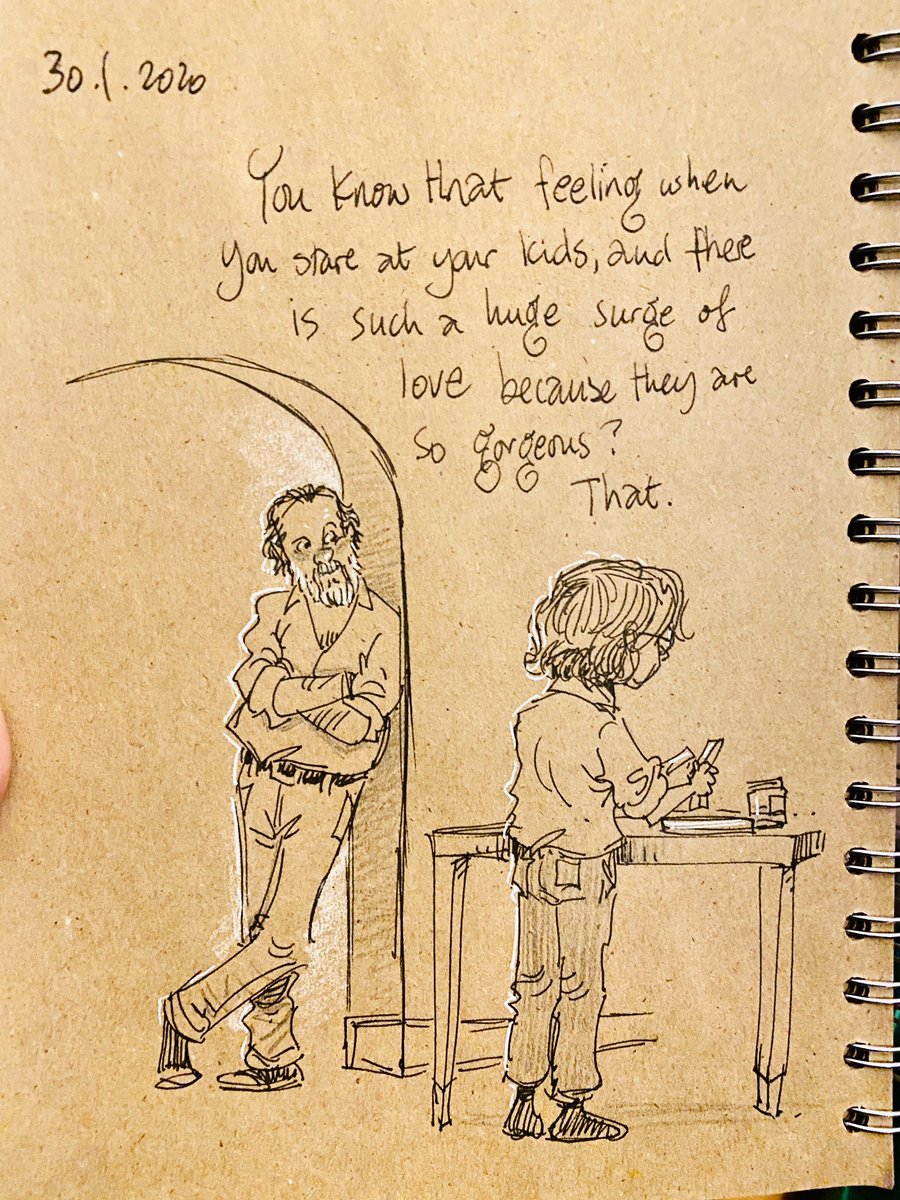 30.1.2020
You know that feeling when
you stare at your kids, and there
is such a huge surge of
love because they are
so gorgeous?
That.